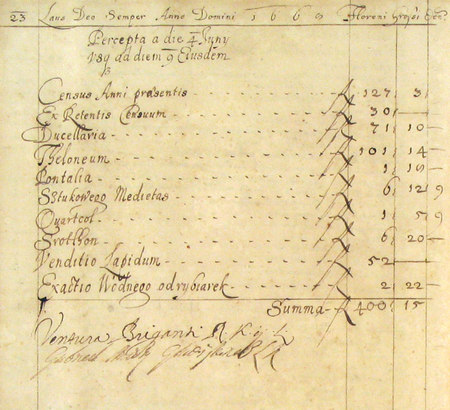 23 Laus Deo Semper Anno Domini 1660 Floreni Grossi Den.
Percepta a die 4 Juny
usq ad diem 9 Eiusdem
Census Anni præsentis 127 3
Ex Retentis Censuum 30 —
Ducellaria 71 10 —
Theloneum 101 14 —
Pontalia 1
Sztukowego Medietas 6 12 9
Quartcol 1 5 9
Srotlhon 6 20 —
Venditio Lapidum 52 —
Exactio Wodnego od rybiarek 2 22 —
Summa 400 15
Ventura Briganti